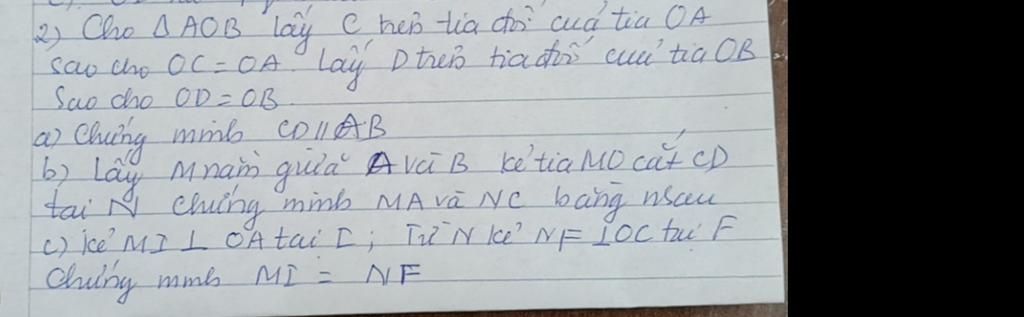 2) Cho Δ AOB lấy C trên tia đối của tia OA
sao cho OC = OA. Lấy D trên tia đối của tia OB
Sao cho OD = OB.
a) Chứng minh CD // AB
b) Lấy M nằm giữa A và B kẻ tia MO cắt CD
tại N chứng minh MA và NC bằng nhau
c) kẻ MI ⊥ OA tại I ; Từ N kẻ NF ⊥ OC tại F
Chứng minh MI = NF